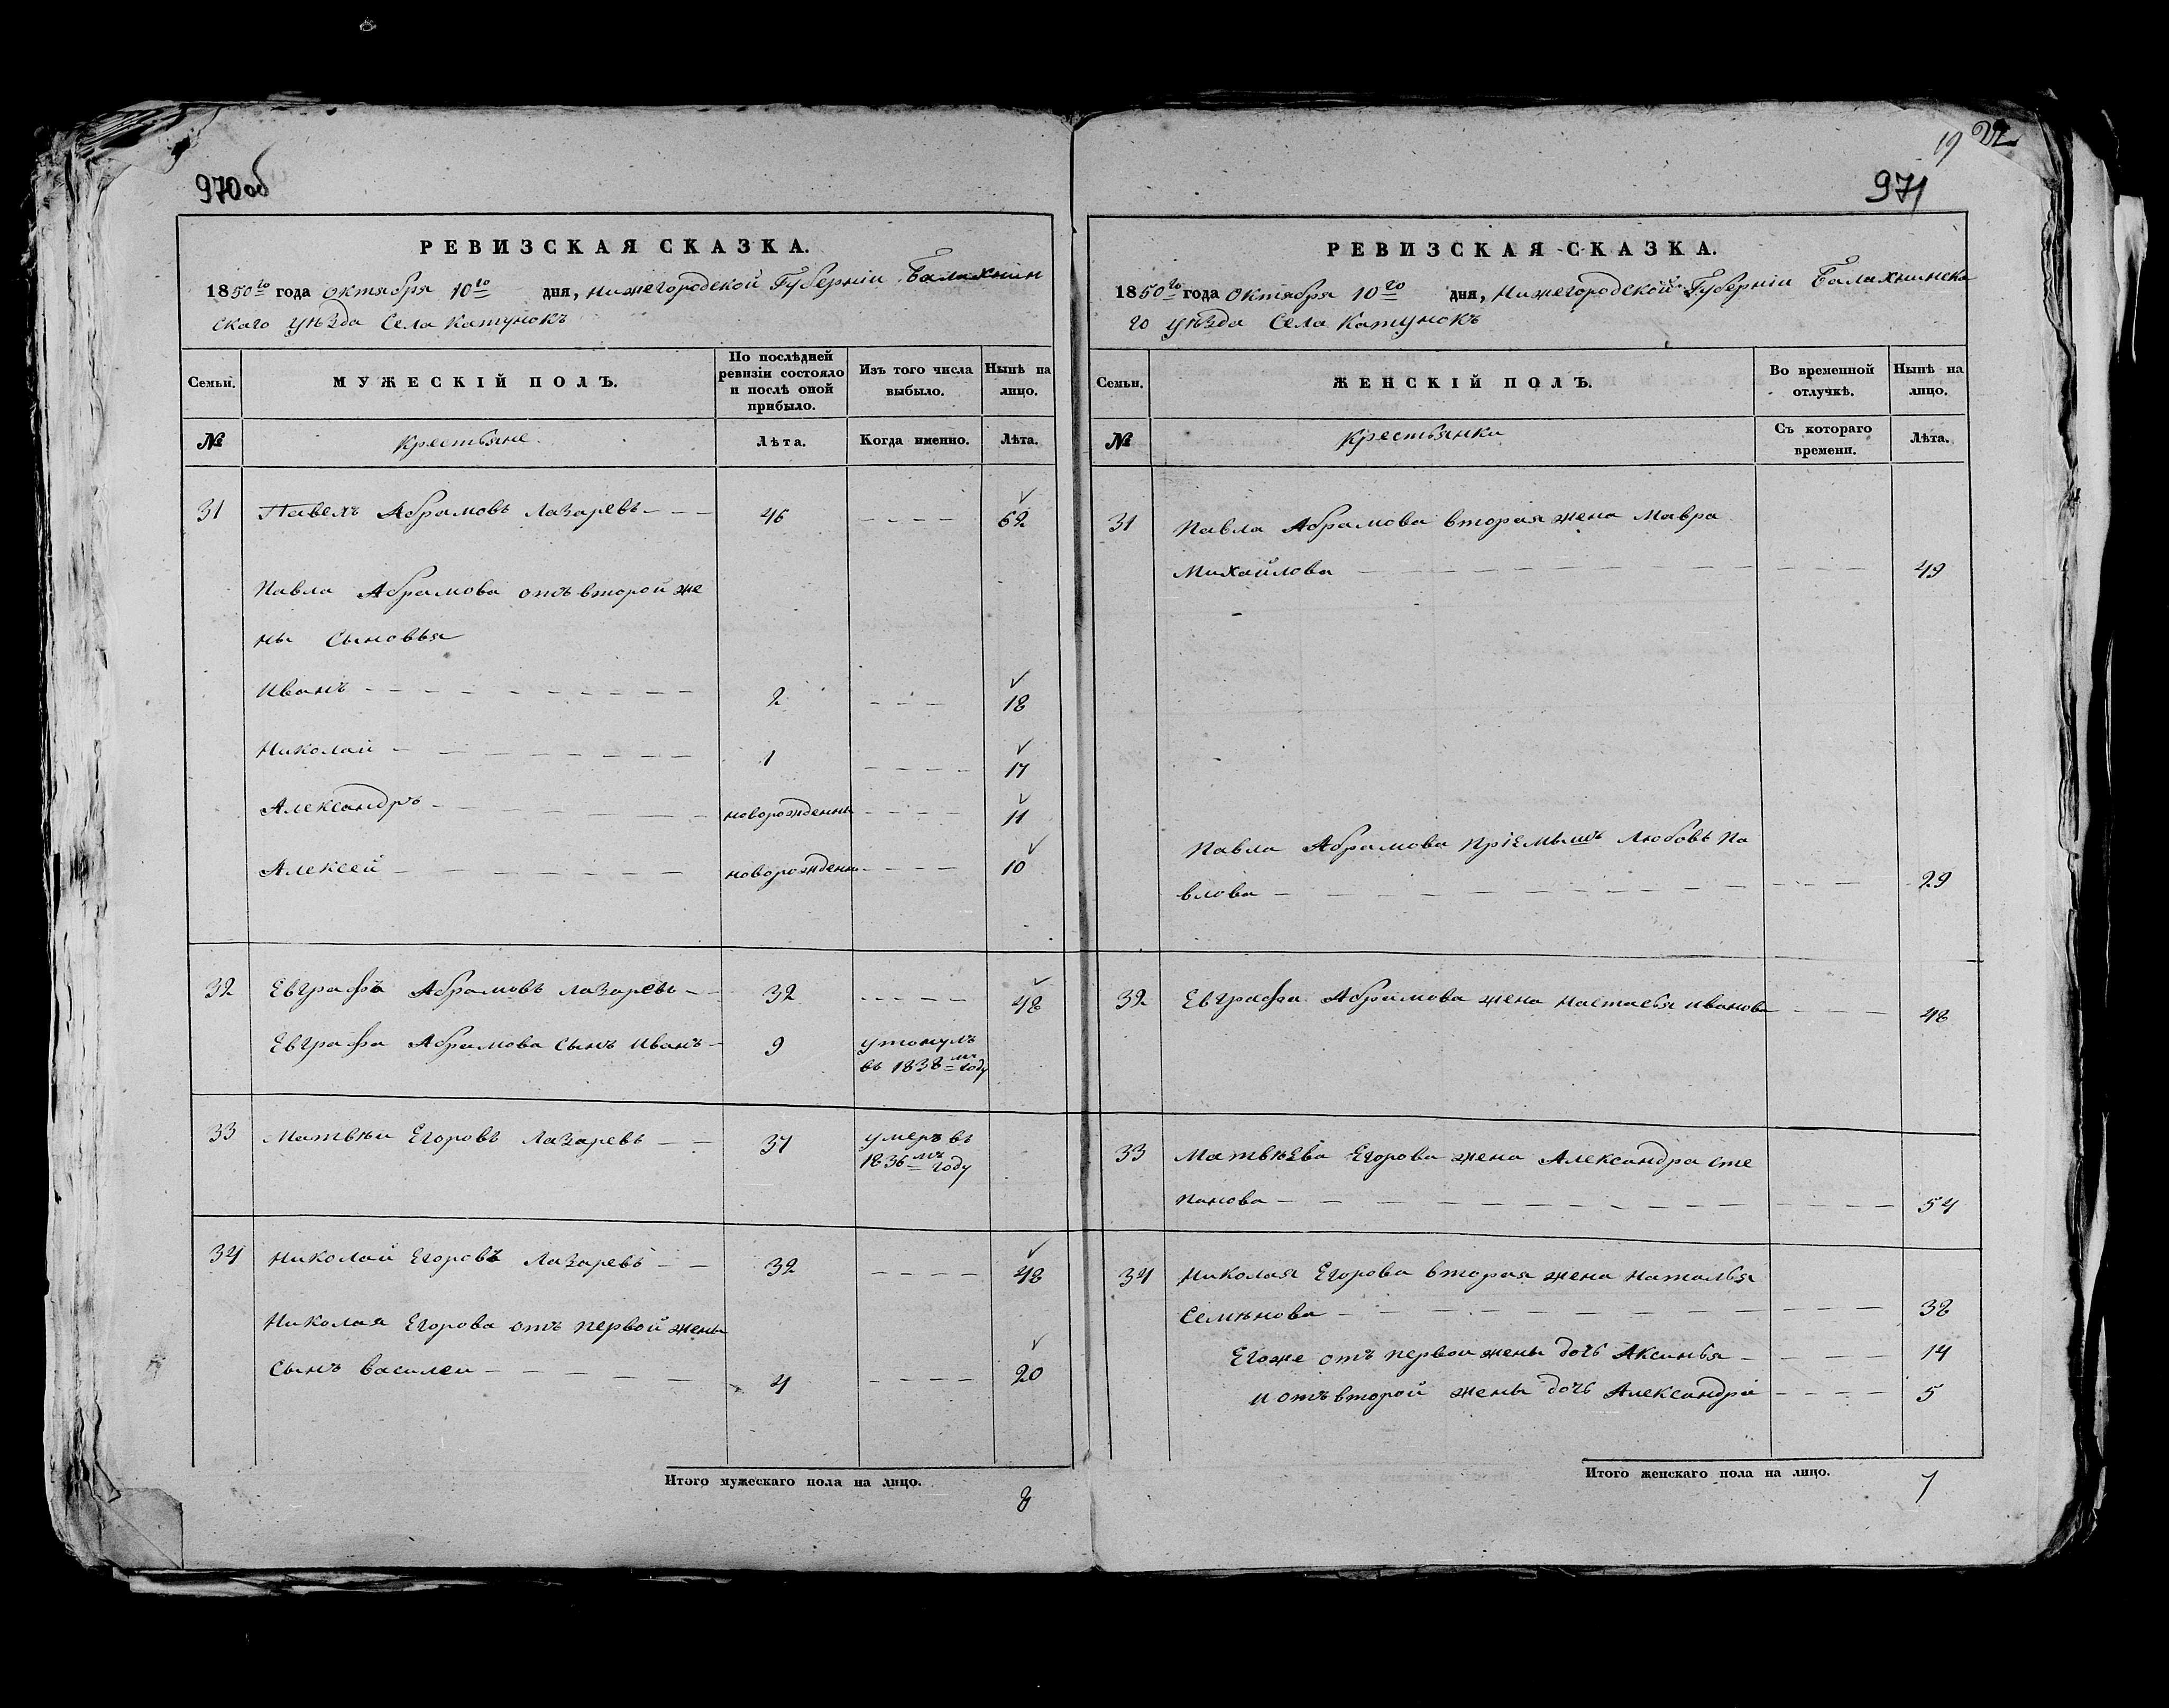 970об
РЕВИЗСКАЯ СКАЗКА.
1850го года Октября 10го дня, Нижегородской Губерніи Балахнин
скаго уѣзда Села Катунокъ
Семьи. МУЖЕСКІЙ ПОЛЪ. По послѣдней ревизіи состояло и послѣ оной прибыло. Изъ того числа выбыло. Нынѣ на лицо.
№ Крестьяне. Лѣта. Когда именно. Лѣта.
31 Павелъ Абрамовъ Лазаревъ - - - 46 - - - - 62
Павла Абрамова отъ второй же
ны Сыновья
Иванъ - - - 2 - - - 18
Николай - - - 1 - - - - 17
Александръ - - - новорожденны - - - - 11
Алексей - - - новорожденн - - - - 10
32 Евграфъ Абрамовъ Лазаревъ - - 32 - - - - 48
Евграфа Абрамова сынъ Иванъ - 9 утонулъ
въ 1838мъ году
33 Матвѣи Егоровъ Лазаревъ - - 37 умеръ въ
1836мъ году
34 Николай Егоровъ Лазаревъ - - 32 - - - - 48
Николая Егорова отъ первой жены
сынъ Василеи - - - 4 - - - - 20
Итого мужескаго пола на лицо.
8
19 22
971
РЕВИЗСКАЯ СКАЗКА.
1850го года Октября 10го дня, Нижегородской Губерніи Балахнинска
го уѣзда Села Катунокъ
Семьи. ЖЕНСКІЙ ПОЛЪ. Во временной отлучкѣ. Нынѣ на лицо.
№ Крестьянки Съ котораго времени. Лѣта.
31 Павла Абрамова вторая жена Мавра
Михайлова - - - 49
Павла Абрамова пріемышъ Любовь Па
влова - - - 29
32 Евграфа Абрамова жена Настасья Иванова - - - 48
33 Матвѣева Егорова жена Александра Сте
панова - - - 54
34 Николая Егорова вторая жена Наталья
Семѣнова - - - 38
Егоже отъ первои жены дочь Аксинья - - - 14
и отъ второй жены дочь Александра - - - 5
Итого женскаго пола на лицо. 7